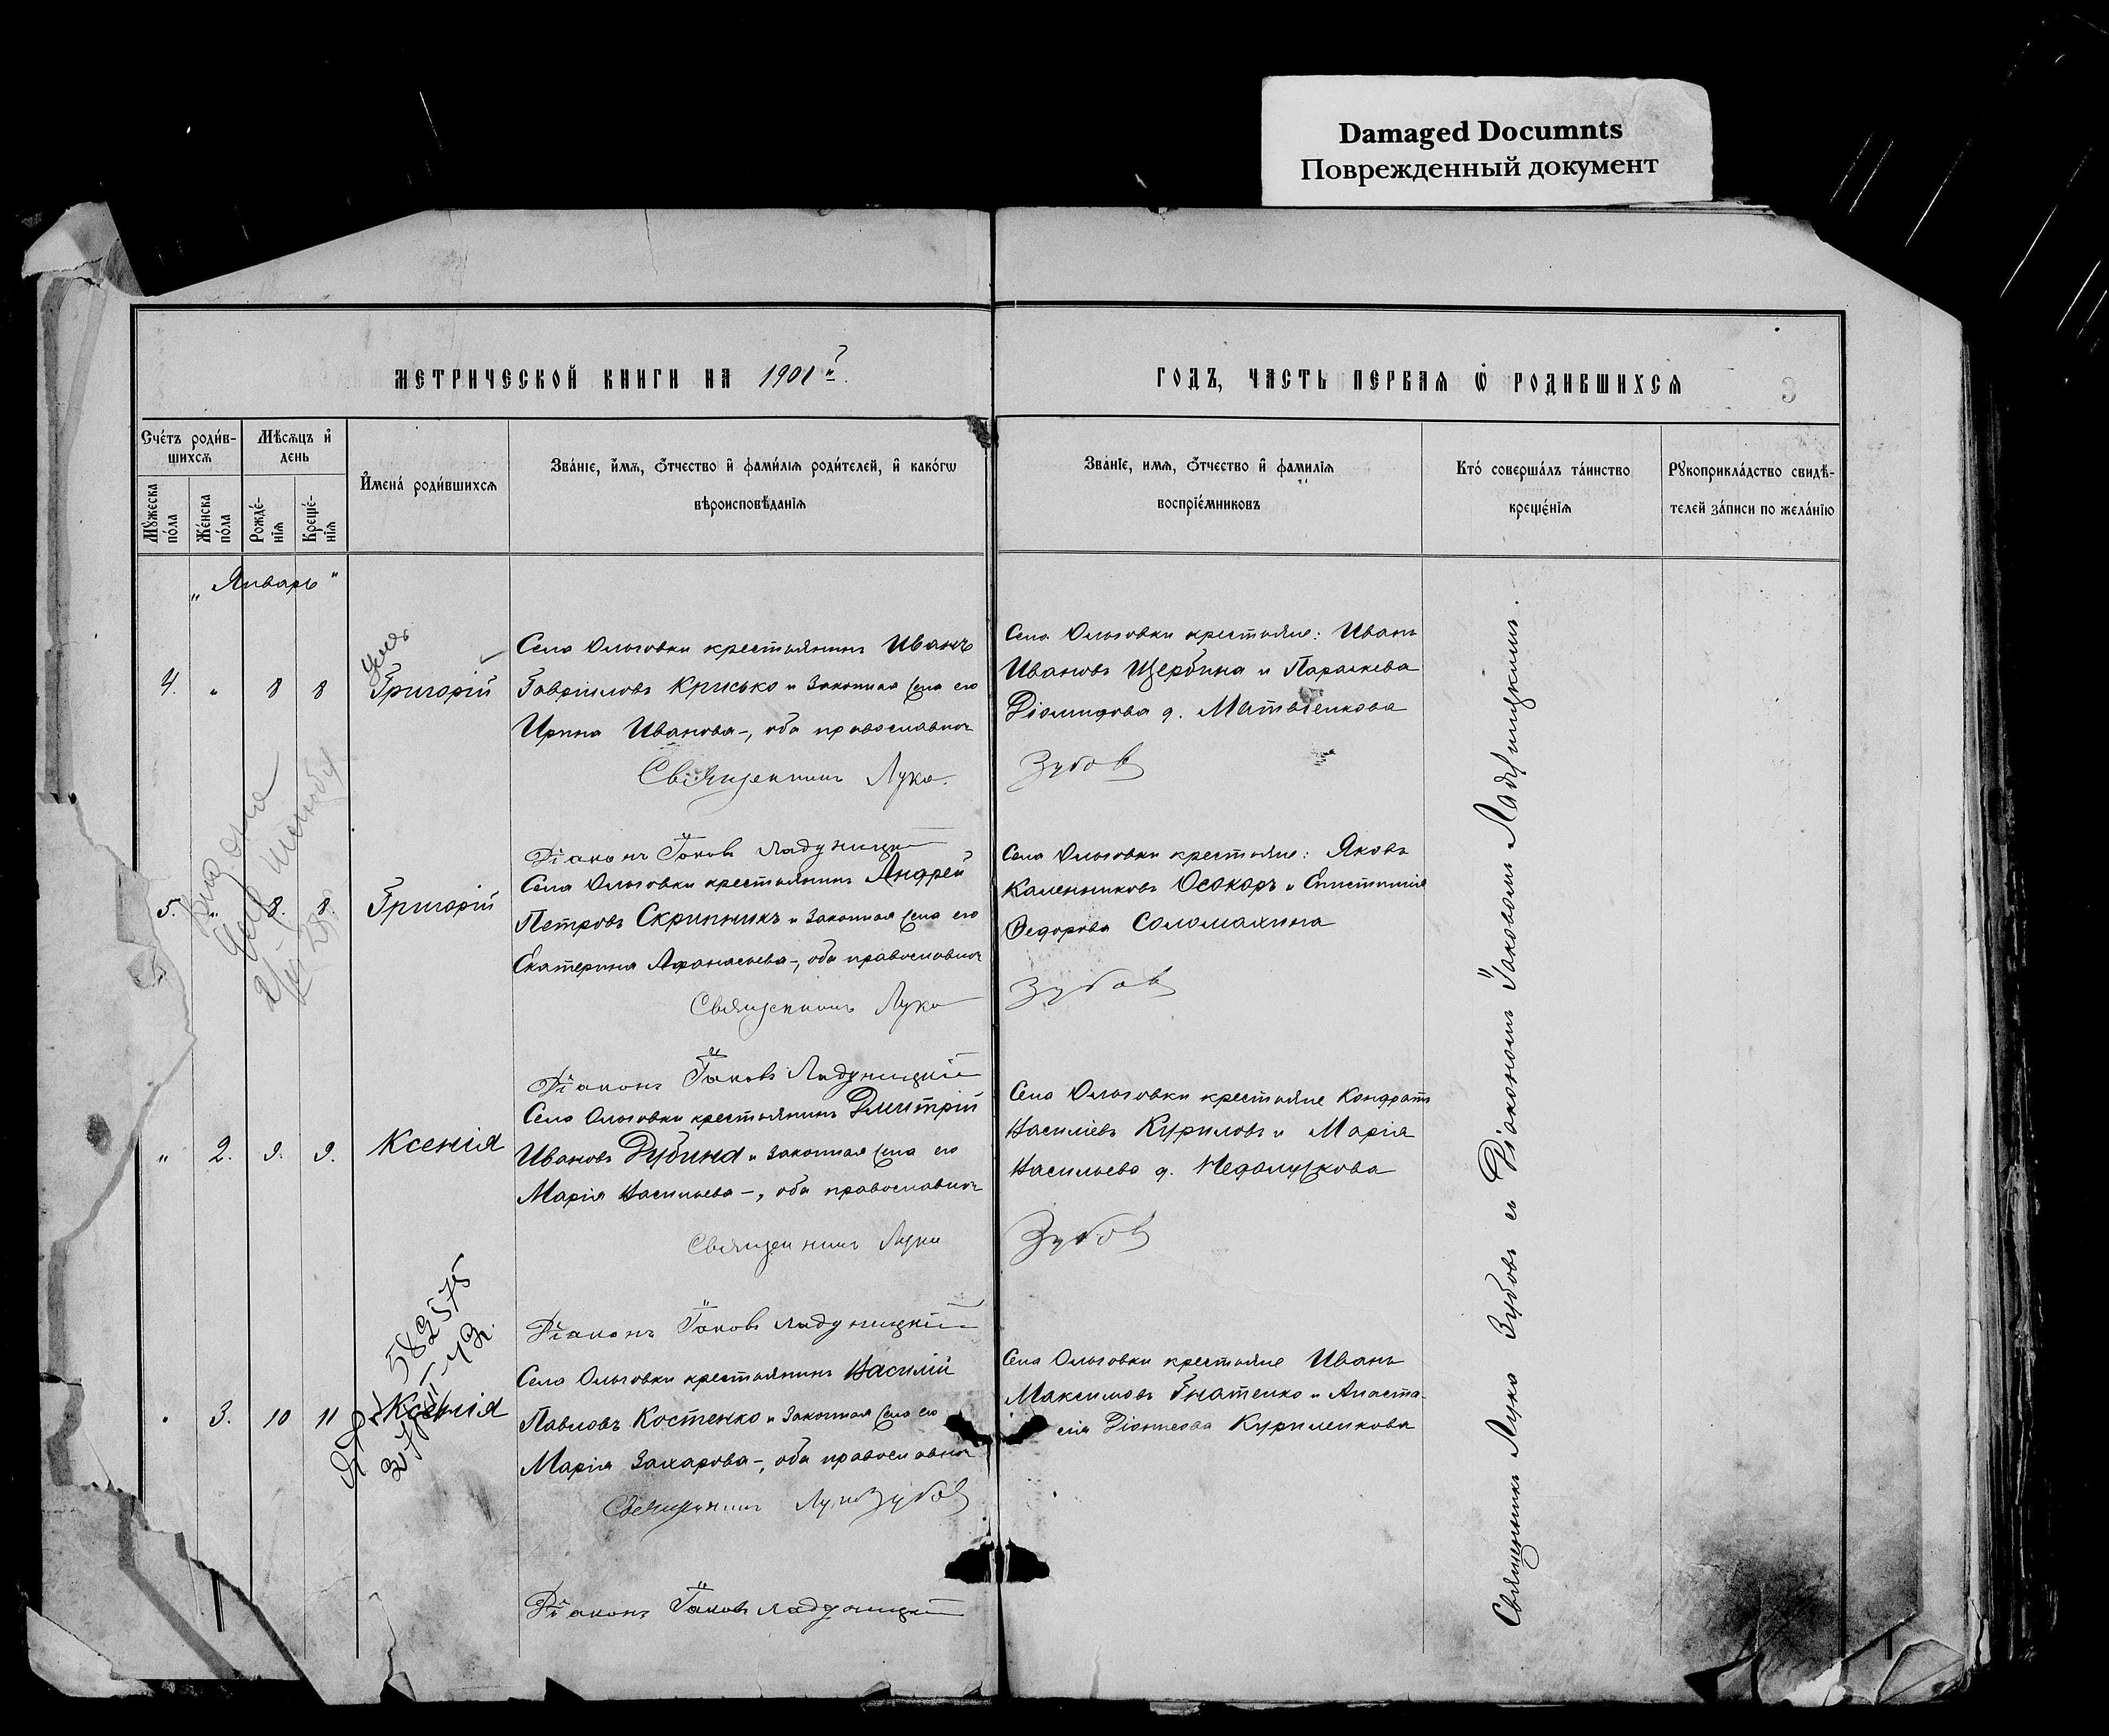 Damaged Documnts
Поврежденный документ
МЕТРИЧЕСКОЙ КНИГИ НА 1901й
ГОДЪ, ЧАСТЬ ПЕРВАѦ Ѿ РОДИВШИХСѦ
3
Счетъ родив-
шихсѧ
Мѣсѧцъ и
день
Мꙋжеска
пола
Женска
пола
Рожде-
нїѧ
Креще-
нїѧ
Имена родившихсѧ
Званїе, имѧ, ѻтчество и фамилїѧ родителей, и какогѡ
вѣроисповѣданїѧ
Званїе, имѧ, ѻтчество и фамилїѧ
воспрїемниковъ
Кто совершалъ таинство
крещенїѧ
Рꙋкоприкладство свидѣ-
телей записи по желанїю
„Январь“
4. „ 8 8 Григорій
Села Ольговки крестьянинъ Иванъ
Гавріиловъ Крисько и законная жена его
Ирина Иванова-, оба православные
Священникъ Лука
Діаконъ Іаковъ Ладужицкій
Села Ольговки крестьяне: Иванъ
Ивановъ Щербина и Параскева
Діомидова д. Матвіенкова
Зубовъ
5. „ 8. 8. Григорій
Села Ольговки крестьянинъ Андрей
Петровъ Скрипникъ и законная жена его
Екатерина Афанасьева-, оба православные
Священникъ Лука
Діаконъ Іаковъ Ладужицкій
Села Ольговки крестьяне: Яковъ
Каленниковъ Осокоръ и Епистимія
Ѳедорова Соломахина
Зубовъ
„ 2. 9. 9. Ксенія
Села Ольговки крестьянинъ Димитрій
Ивановъ Дубина и законная жена его
Марія Васильева-, оба православные
Священникъ Лука
Діаконъ Іаковъ Ладужицкій
Села Ольговки крестьяне Кондратъ
Василіевъ Куриловъ и Марія
Васильева д.
Зубовъ
„ 3. 10 11 Ксенія
582575
Села Ольговки крестьянинъ Василій
Павловъ Костенко и законная жена его
Марія Захарова-, оба православные
Священникъ Лука Зубовъ
Діаконъ Іаковъ Ладужицкій
Села Ольговки крестьяне Иванъ
Максимовъ Гнатенко и Анаста-
сія Куриленкова
Священникъ Лука Зубовъ съ Діакономъ Іаковомъ Ладужицкимъ.